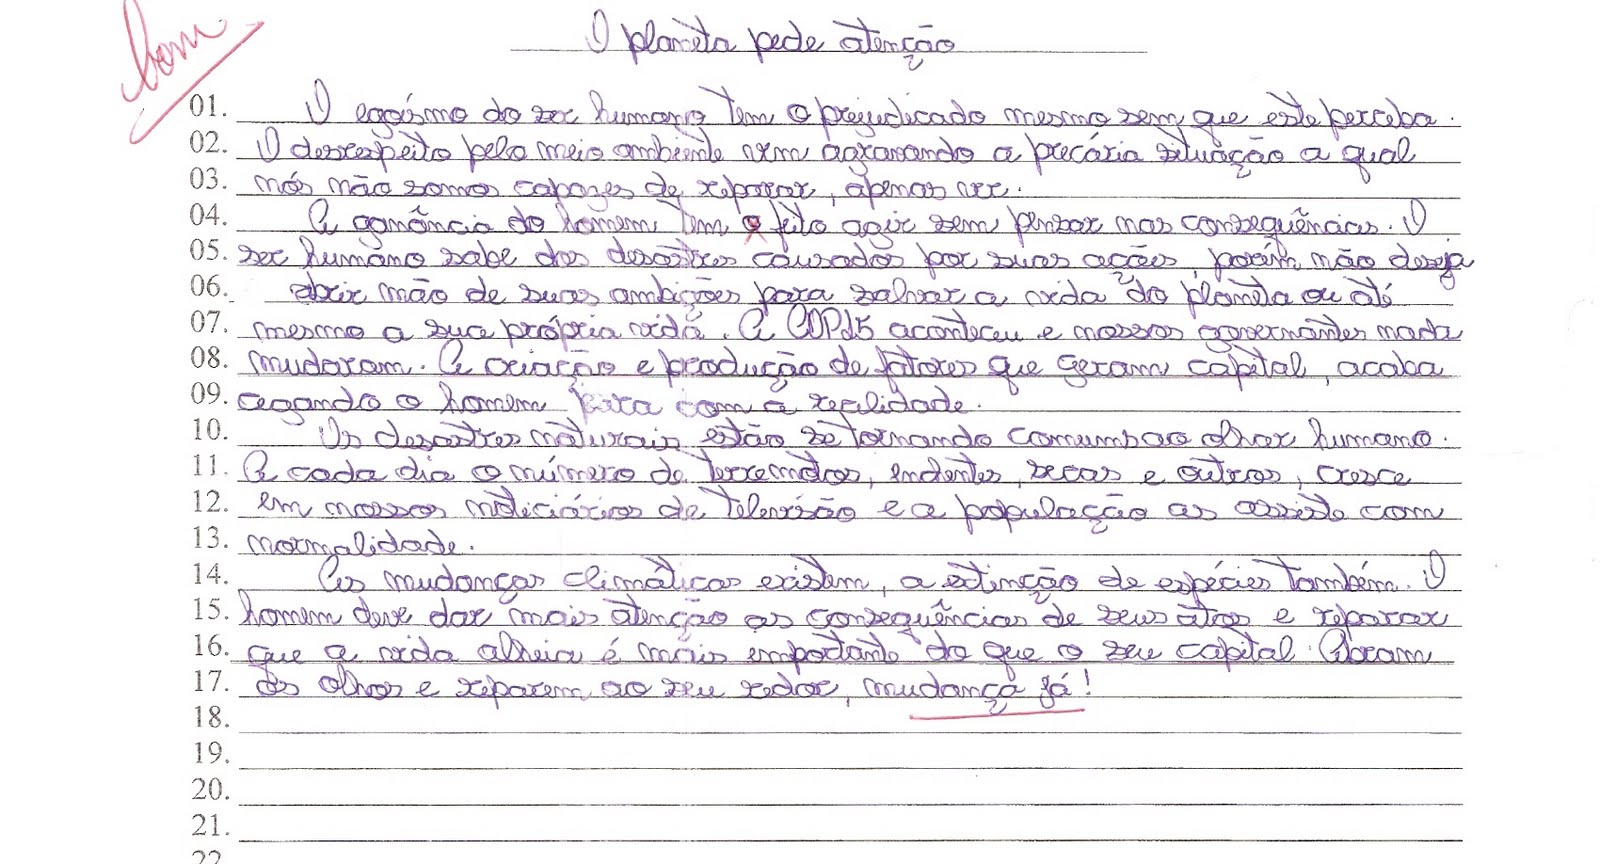 bom
O planeta pede atenção
01. O egoísmo do ser humano tem o prejudicado mesmo sem que este perceba.
02. O desrespeito pelo meio ambiente vem agravando a precária situação a qual
03. nós não somos capazes de reparar, apenas ver.
04. A ganância do homem tem o feito agir sem pensar nas consequências. O
05. ser humano sabe dos desastres causados por suas ações, porém não deseja
06. abrir mão de suas ambições para salvar a vida do planeta ou até
07. mesmo a sua própria vida. A COP15 aconteceu e nossos governantes nada
08. mudaram. A criação e produção de fatores que geram capital, acaba
09. cegando o homem para com a realidade.
10. Os desastres naturais estão se tornando comuns ao olhar humano.
11. A cada dia o número de terremotos, enchentes, secas e outros, cresce
12. em nossos noticiários de televisão e a população as assiste com
13. normalidade.
14. As mudanças climáticas existem, a extinção de espécies também. O
15. homem deve dar mais atenção as consequências de seus atos e reparar
16. que a vida alheia é mais importante do que o seu capital. Abram
17. os olhos e reparem ao seu redor, mudança já!
18.
19.
20.
21.
22